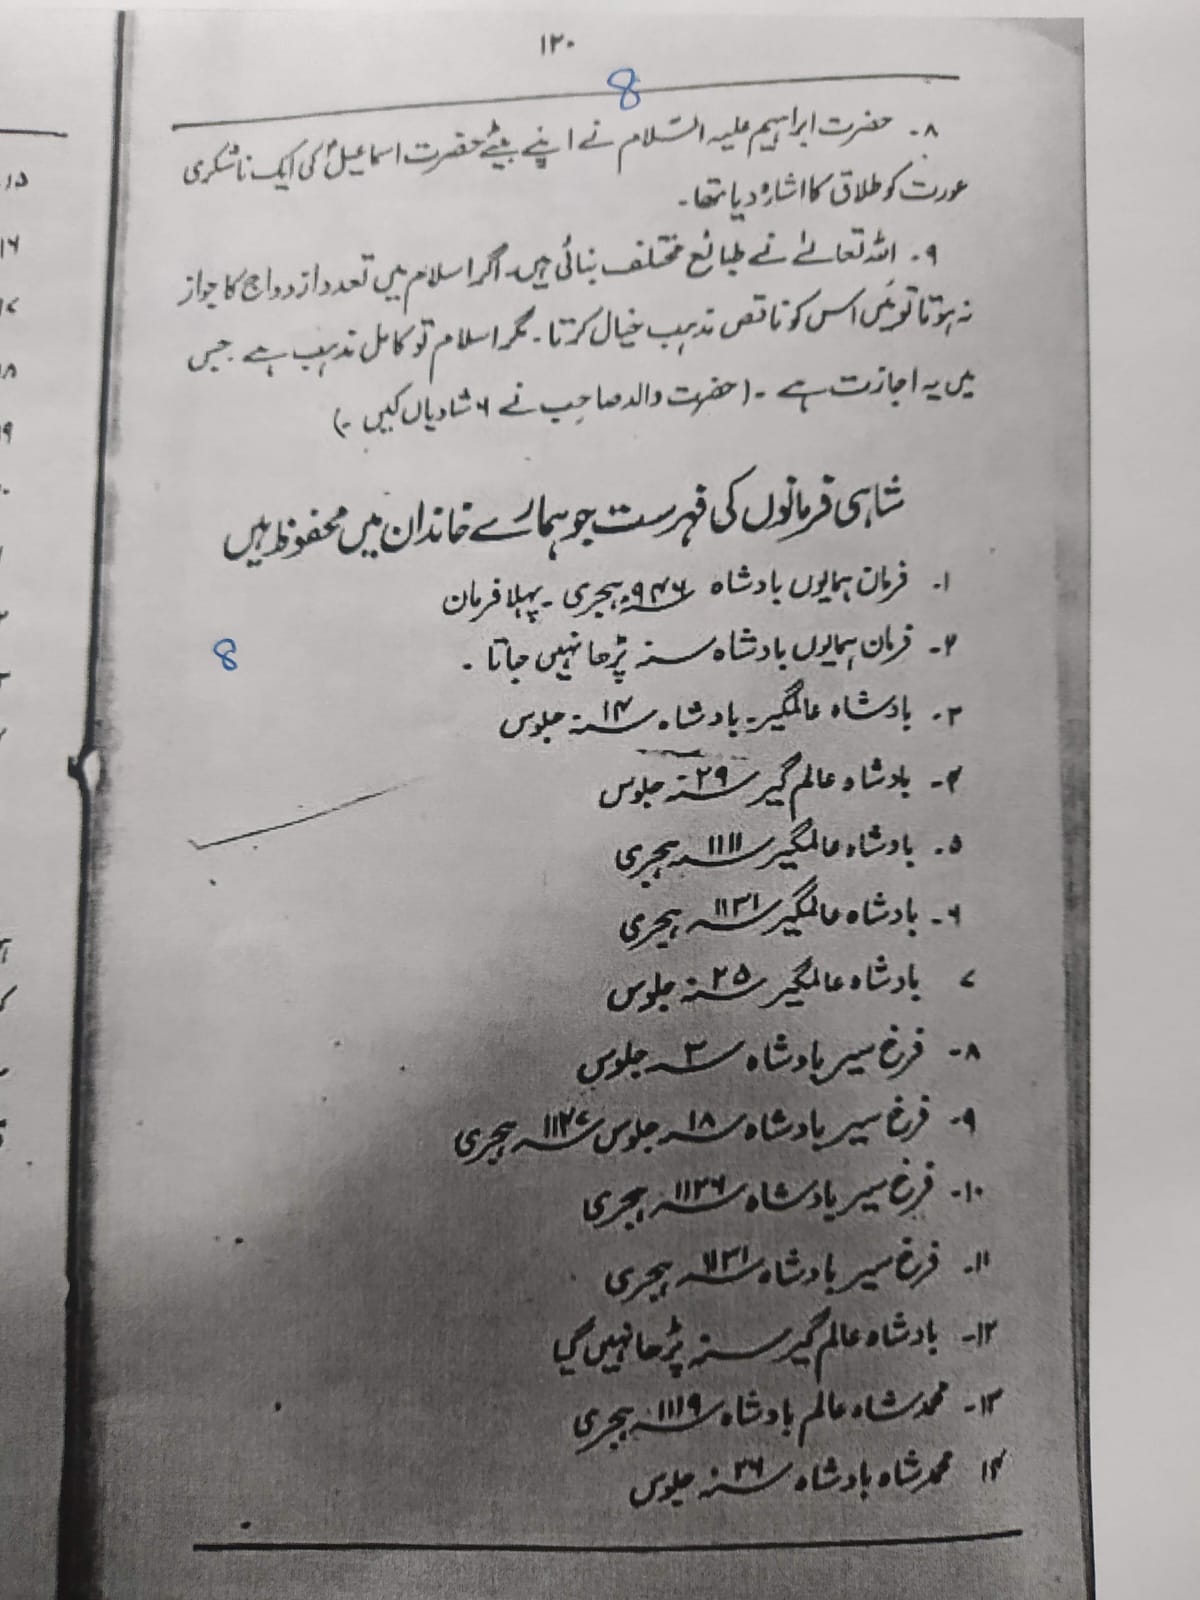 ۱۲۰
8
۸۔ حضرت ابراہیم علیہ السّلام نے اپنے بیٹے حضرت اسماعیلؑ کی ایک ناشکری
عورت کو طلاق کا اشارہ دیا تھا۔
۹۔ اللہ تعالےٰ نے طبائع مختلف بنائی ہیں۔ اگر اسلام میں تعدد ازدواج کا جواز
نہ ہوتا تو میں اس کو ناقص مذہب خیال کرتا۔ مگر اسلام تو کامل مذہب ہے۔ جس
میں یہ اجازت ہے۔ (حضرت والد صاحب نے ۶ شادیاں کیں۔)
شاہی فرمانوں کی فہرست جو ہمارے خاندان میں محفوظ ہیں
۱۔ فرمان ہمایوں بادشاہ ۹۴۶ سنہ ہجری۔ پہلا فرمان
۲۔ فرمان ہمایوں بادشاہ سنہ پڑھا نہیں جاتا۔
8
۳۔ بادشاہ عالمگیر۔ بادشاہ سنہ ۱۴ جلوس
۴۔ بادشاہ عالم گیر سنہ ۲۹ جلوس
۵۔ بادشاہ عالمگیر سنہ ۱۱۱۱ ہجری
۶۔ بادشاہ عالمگیر سنہ ۱۱۳۱ ہجری
۷ بادشاہ عالمگیر سنہ ۲۵ جلوس
۸۔ فرخ سیر بادشاہ سنہ ۳ جلوس
۹۔ فرخ سیر بادشاہ سنہ ۱۸ جلوس سنہ ۱۱۲۷ ہجری
۱۰۔ فرخ سیر بادشاہ سنہ ۱۱۲۶ ہجری
۱۱۔ فرخ سیر بادشاہ سنہ ۱۱۳۱ ہجری
۱۲۔ بادشاہ عالم گیر سنہ پڑھا نہیں گیا
۱۳۔ محمد شاہ عالم بادشاہ سنہ ۱۱۱۹ ہجری
۱۴ محمد شاہ بادشاہ سنہ ۲۶ جلوس